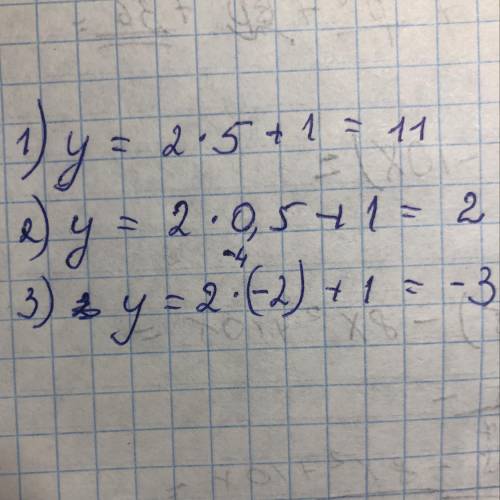 1) y = 2 · 5 + 1 = 11
2) y = 2 · 0,5 + 1 = 2
-4
3) y = 2 · (-2) + 1 = -3